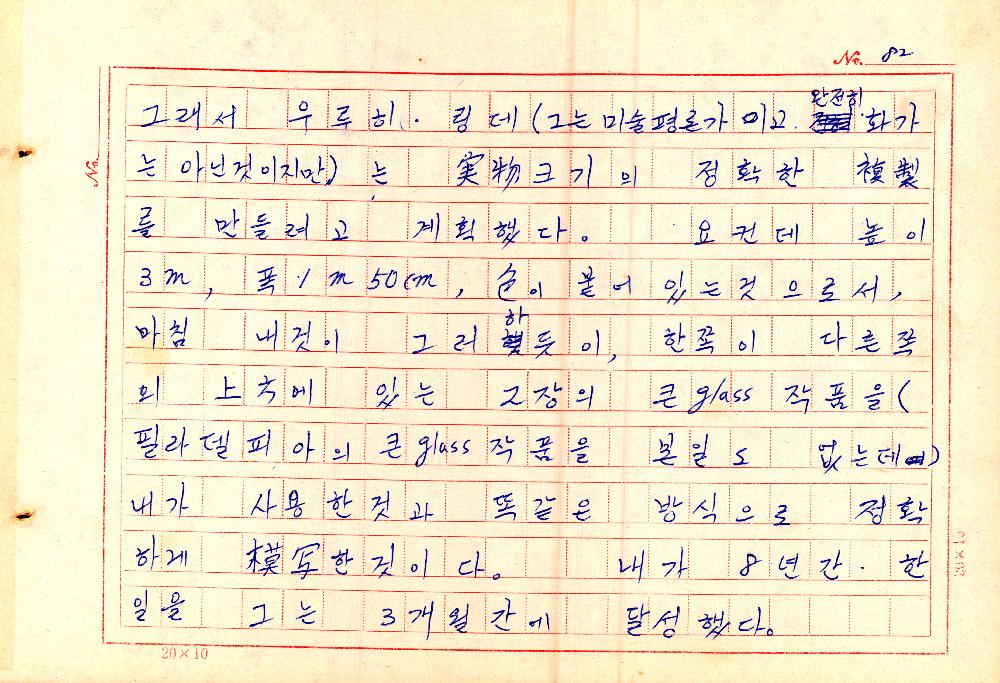 No. 82
완전히
그래서 우루히·링데(그는 미술평론가이고 화가
는 아닌것이지만)는 実物크기의 정확한 複製
를 만들려고 계획했다. 요컨데 높이
3m, 폭 1m 50cm, 色이 붙어 있는것으로서,
하
마침 내것이 그러듯이, 한쪽이 다른쪽
의 上부에 있는 2장의 큰 glass 작품을(
필라델피아의 큰 glass 작품을 본일도 없는데)
내가 사용한것과 똑같은 방식으로 정확
하게 模写한것이다. 내가 8년간 한
일을 그는 3개월간에 달성했다.
No.
20×10